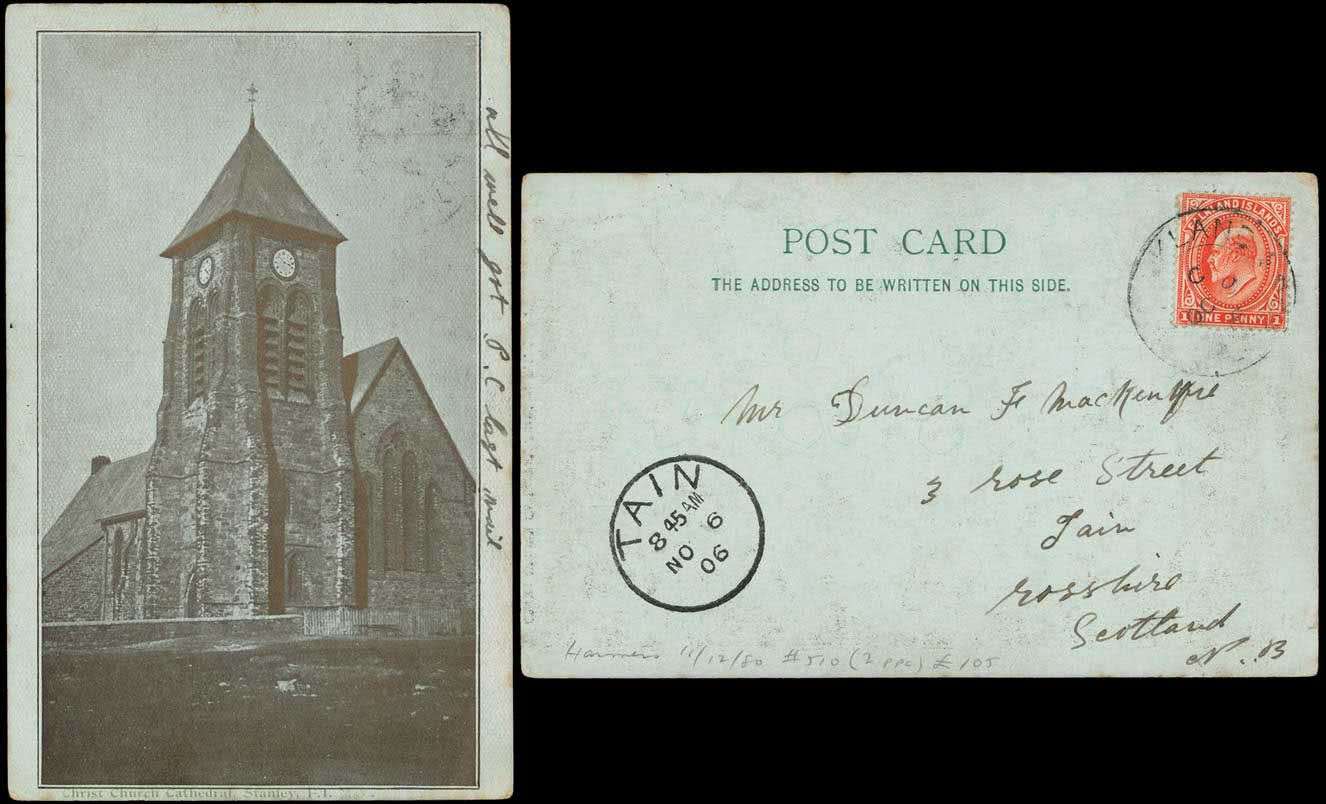 all well got P.C last mail
Christ Church Cathedral, Stanley, F.I.
POST CARD
THE ADDRESS TO BE WRITTEN ON THIS SIDE.
LKLAND ISLANDS
1 ONE PENNY 1
Mr Duncan F Mackenzie
3 rose Street
Tain
rosshire
Scotland
N.B
TAIN
8 45 AM
NO 6
06
Harmers 11/12/80 #510 (2 ppc) £105